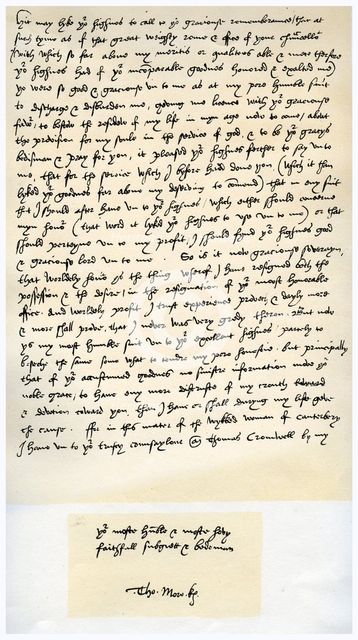 Hit may lyke yor highnes to call to yor graciouse remembraunce, that at
such tyme as of that great weighty rome & office of yor chauncellor
(with which so far above my meritis or qualitees able & mete therefore
yor highnes had of yor incomparable goodnes honored & exalted me)
ye were so good & graciouse un to me as at my pore humble suit
to discharge & disburden me, geving me licence with yor graciouse
favor to bestow the residew of my life in myn age now to come, about
the provision for my soule in the service of god, & to be yor gracys
bedisman & pray for you, it pleased yor highnes ferther to say un to
me, that for the service which I byfore had done you (which it then
lyked yor goodnes far above my deserving to commend) that in eny suit
that I should after have un to yor highnes which other should concerne
myn honor (that word it lyked yor highnes to use un to me) or that
should perteyne un to my profit, I should fynd yor highnes good
& graciouse lord un to me. So is it now graciouse soverayn,
that worldely honor is the thing wherof I have resigned both the
possession & the desire, in the resignation of yor moost honorable
office. And worldely profit I trust experience proveth, & dayly more
& more shall prove, that I never was very gredy theron. But now
ys my most humble suit un to yor excellent highnes partely to
beseche the same some what to tendre my pore honestie, but principally
that of yor accustumed goodnes no sinistre information move yor
noble grace, to have eny more distruste of my trouth toward
& devotion toward you, than I have or shall during my life geve
the cause. ffor in this mater of the wykked woman of canterbery
I have un to yor trusty counsaylour Thomas Cromwell by my
yor moste humble & moste hevy
faithfull subgett & bedeman
Tho. More. kg.